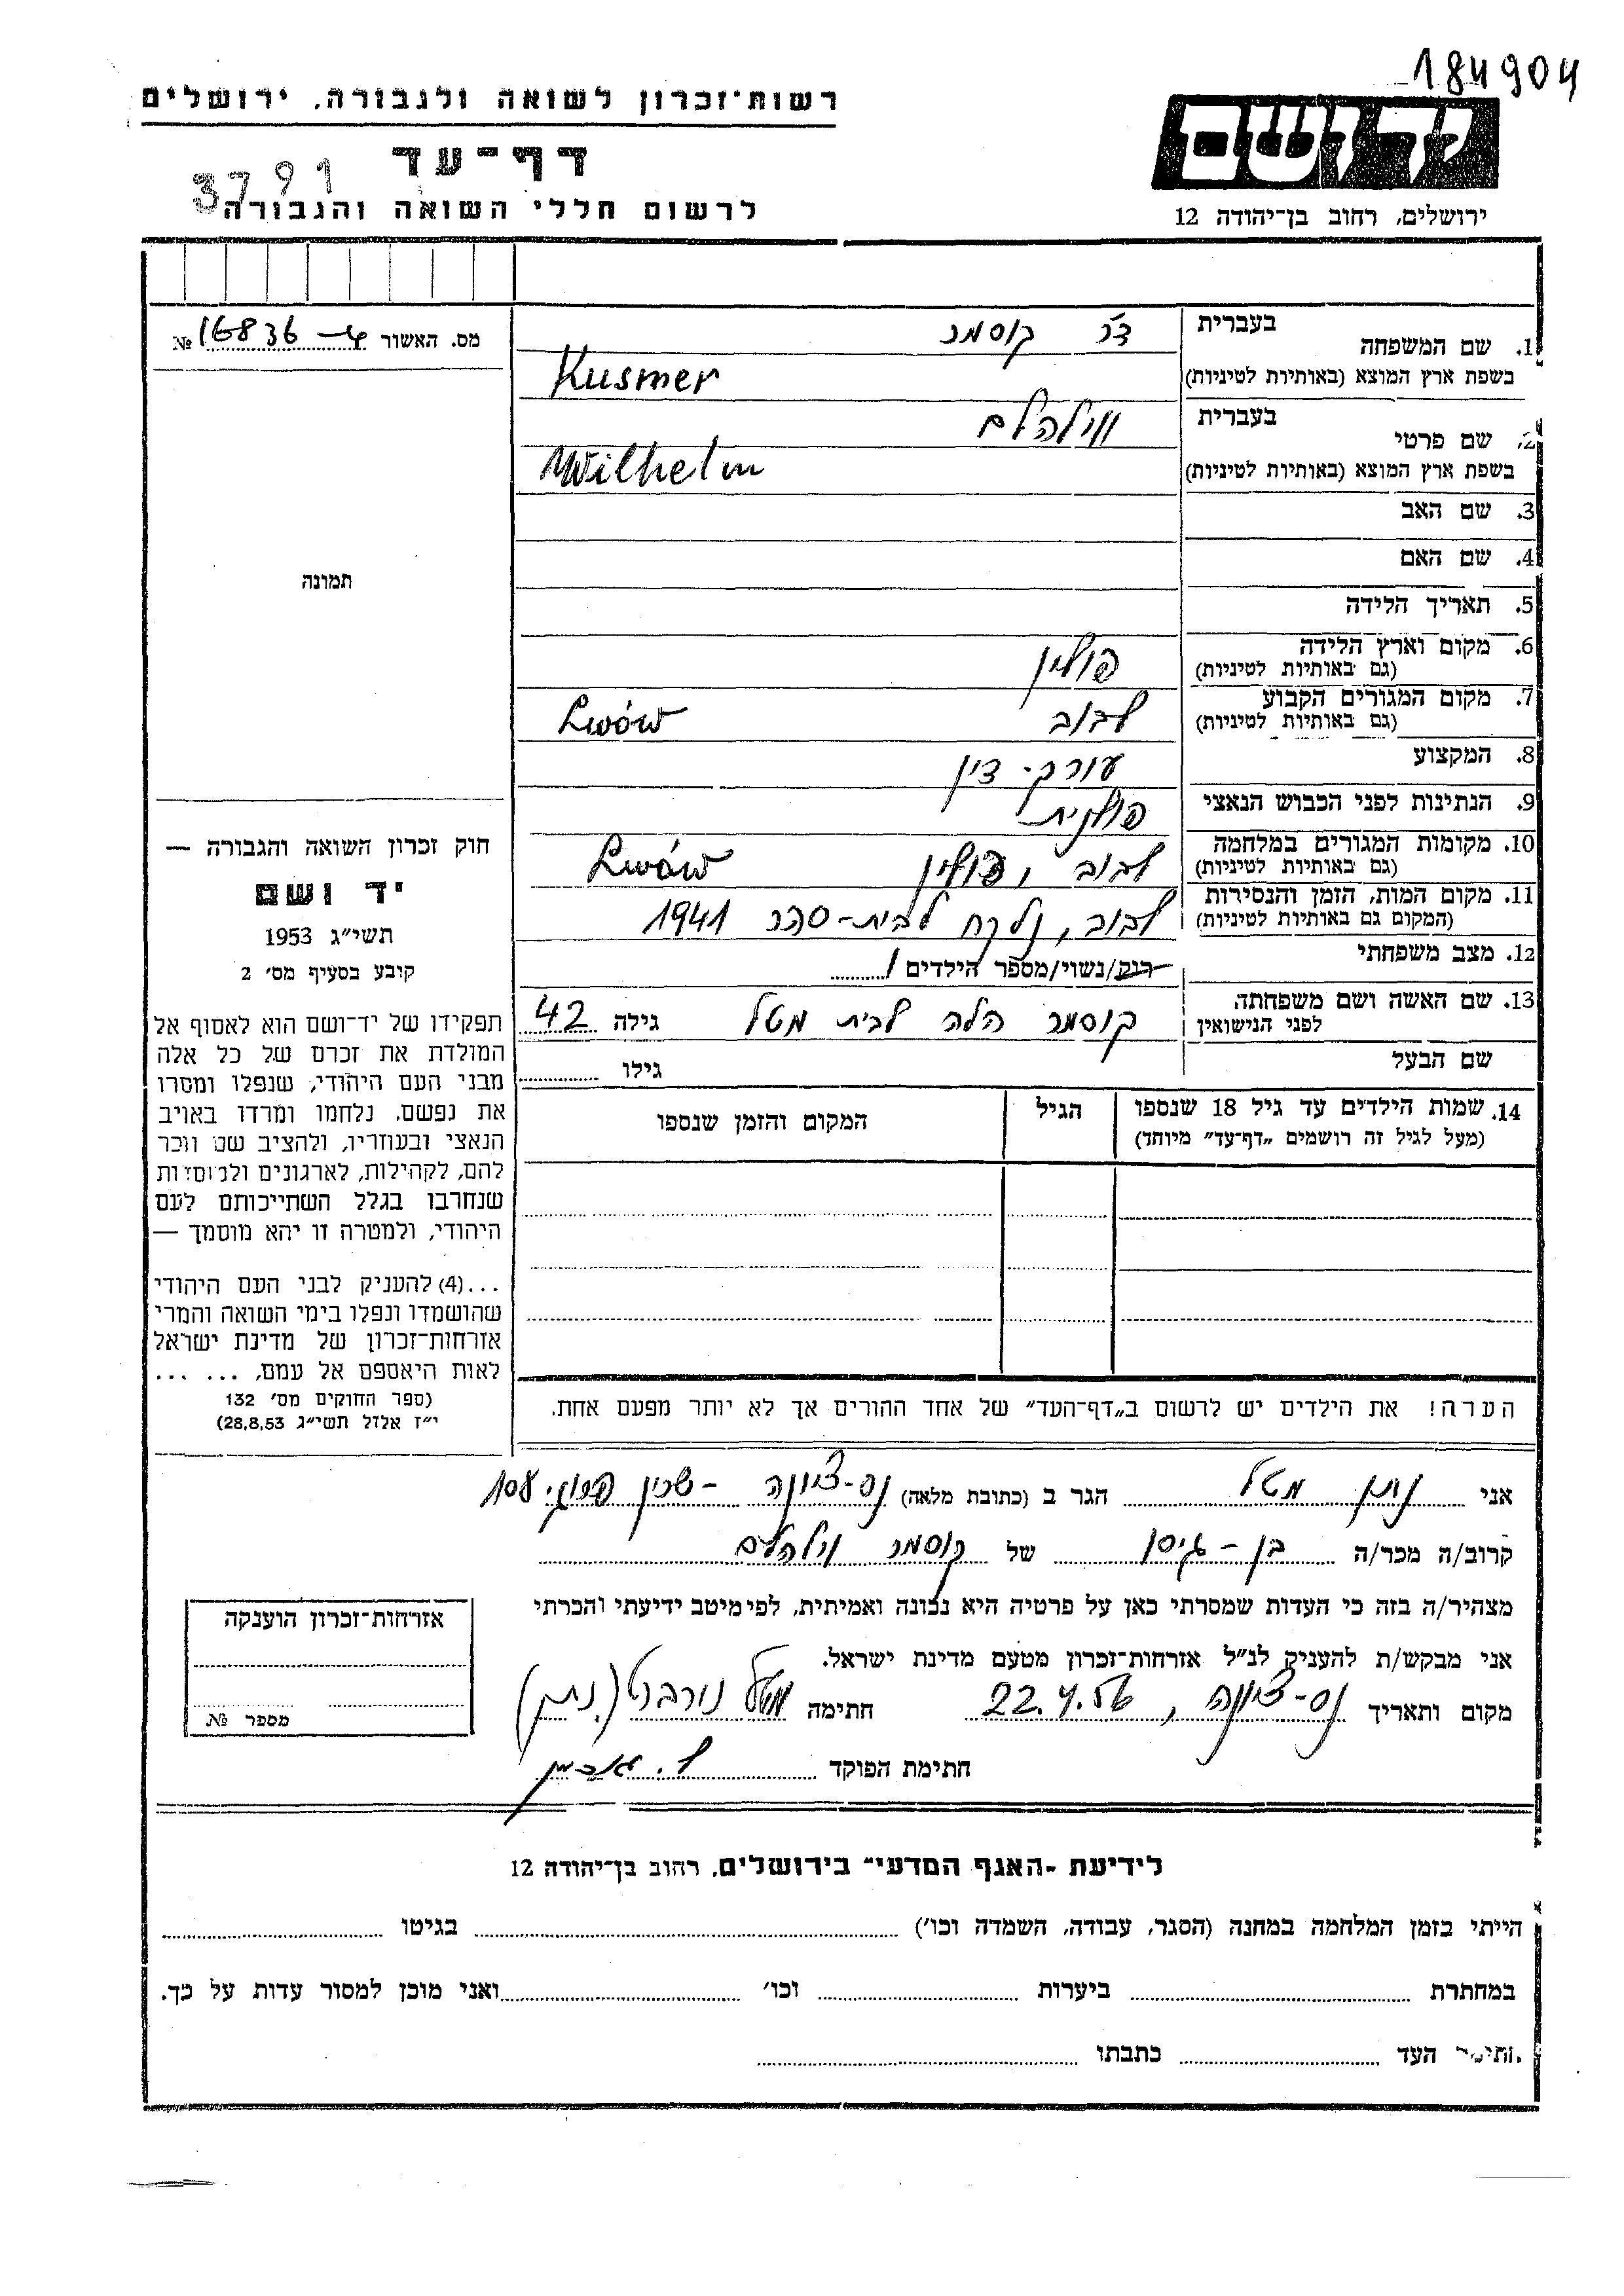 184904
רשות־זכרון לשואה ולגבורה, ירושלים
יד ושם
דף־עד
3791
לרשום חללי השואה והגבורה
ירושלים, רחוב בן־יהודה 12
בעברית ד"ר קוסמר
1. שם המשפחה
בשפת ארץ המוצא (באותיות לטיניות) Kusmer
מס. האשור 16836 №
בעברית ווילהלם
2. שם פרטי
בשפת ארץ המוצא (באותיות לטיניות) Wilhelm
3. שם האב
4. שם האם
5. תאריך הלידה
6. מקום וארץ הלידה פולין
(גם באותיות לטיניות)
7. מקום המגורים הקבוע לבוב Lwów
(גם באותיות לטיניות)
8. המקצוע עורך-דין
9. הנתינות לפני הכבוש הנאצי פולנית
10. מקומות המגורים במלחמה לבוב, פולין Lwów
(גם באותיות לטיניות)
11. מקום המות, הזמן והנסירות לבוב, נלקח לבית-סהר 1941
(המקום גם באותיות לטיניות)
12. מצב משפחתי
רווק/נשוי/מספר הילדים 1
13. שם האשה ושם משפחתה קוסמר הלה לבית מטל גילה 42
לפני הנישואין
שם הבעל גילו
14. שמות הילדים עד גיל 18 שנספו הגיל המקום והזמן שנספו
(מעל לגיל זה רושמים „דף־עד” מיוחד)
הערה! את הילדים יש לרשום ב„דף־העד” של אחד ההורים אך לא יותר מפעם אחת.
תמונה
חוק זכרון השואה והגבורה —
יד ושם
תשי״ג 1953
קובע בסעיף מס׳ 2
תפקידו של יד־ושם הוא לאסוף אל
המולדת את זכרם של כל אלה
מבני העם היהודי, שנפלו ומסרו
את נפשם, נלחמו ומרדו באויב
הנאצי ובעוזריו, ולהציב שם וזכר
להם, לקהילות, לארגונים ולמוסדות
שנחרבו בגלל השתייכותם לעם
היהודי, ולמטרה זו יהא מוסמך —
...(4) להעניק לבני העם היהודי
שהושמדו ונפלו בימי השואה והמרי
אזרחות־זכרון של מדינת ישראל
לאות היאספם אל עמם, ... ...
(ספר החוקים מס׳ 132
י״ז אלול תשי״ג 28,8,53)
אני נתן מטל הגר ב (כתובת מלאה) נס-ציונה - שכון 108
קרוב/ה מכר/ה בן-גיסו של קוסמר וילהלם
מצהיר/ה בזה כי העדות שמסרתי כאן על פרטיה היא נכונה ואמיתית, לפי מיטב ידיעתי והכרתי
אני מבקש/ת להעניק לנ״ל אזרחות־זכרון מטעם מדינת ישראל.
מקום ותאריך נס-ציונה, 22.4.56 חתימה מטל נורברט (נתן)
חתימת הפוקד
אזרחות־זכרון הוענקה
מספר №
לידיעת ־האגף המדעי״ בירושלים, רחוב בן־יהודה 12
הייתי בזמן המלחמה במחנה (הסגר, עבודה, השמדה וכו׳) בגיטו
במחתרת ביערות וכו׳ ואני מוכן למסור עדות על כך.
חתימת העד כתבתו